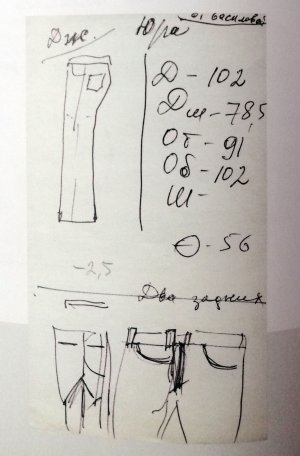 от Василовой
Дж. Юра
Д - 102
Дш - 78,5
От - 91
Об - 102
Ш -
⊖ - 56
-2,5
Два задних